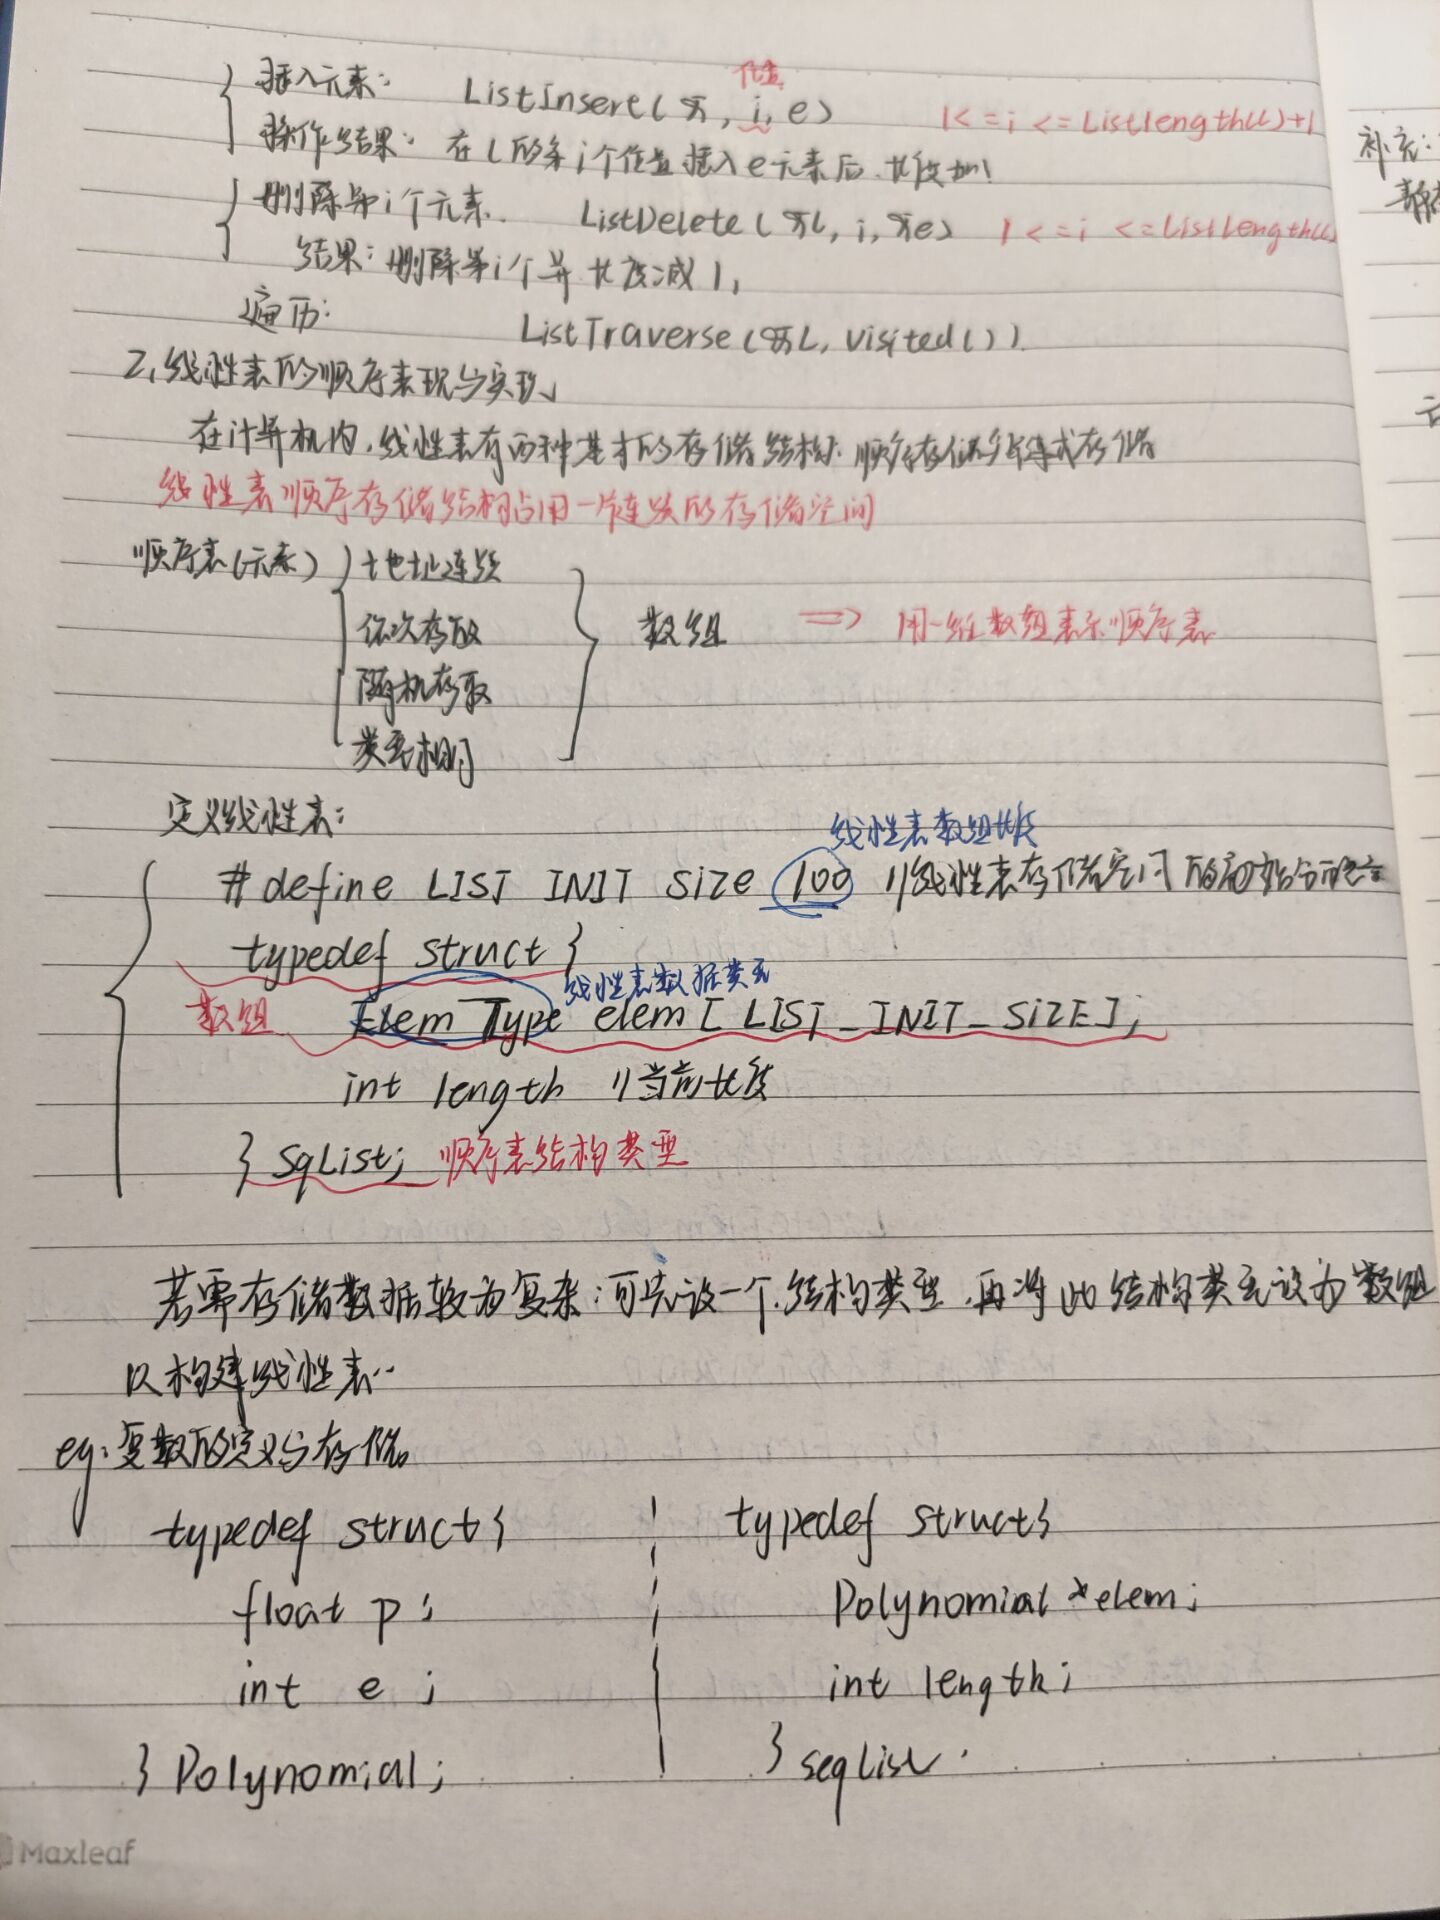 位置
插入元素: ListInsert(&, i, e) 1<=i<=Listlength(L)+1
操作结果: 在L的第i个位置插入e元素后,长度加1
删除第i个元素. ListDelete(&L, i, &e) 1<=i<=ListLength(L)
结果:删除第i个并长度减1,
遍历: ListTraverse(&L, visited()).
2,线性表的顺序表现与实现
在计算机内,线性表有两种基本的存储结构:顺序存储与链式存储
线性表顺序存储结构占用一片连续的存储空间
顺序表(元素) 地址连续
依次存放 数组 => 用一维数组表示顺序表
随机存取
类型相同
定义线性表:
线性表数组长度
#define LIST INIT SIZE 100 //线性表存储空间的初始分配量
typedef struct{
线性表数据类型
数组 Elem Type elem[LIST_INIT_SIZE];
int length //当前长度
}SqList; 顺序表结构类型
若需存储数据较为复杂:可先设一个结构类型,再将此结构类型设为数组
以构建线性表..
eg:复数的定义与存储
typedef struct{
float p;
int e;
}Polynomial;
typedef struct{
Polynomial *elem;
int length;
}seqList.
补充:
Maxleaf